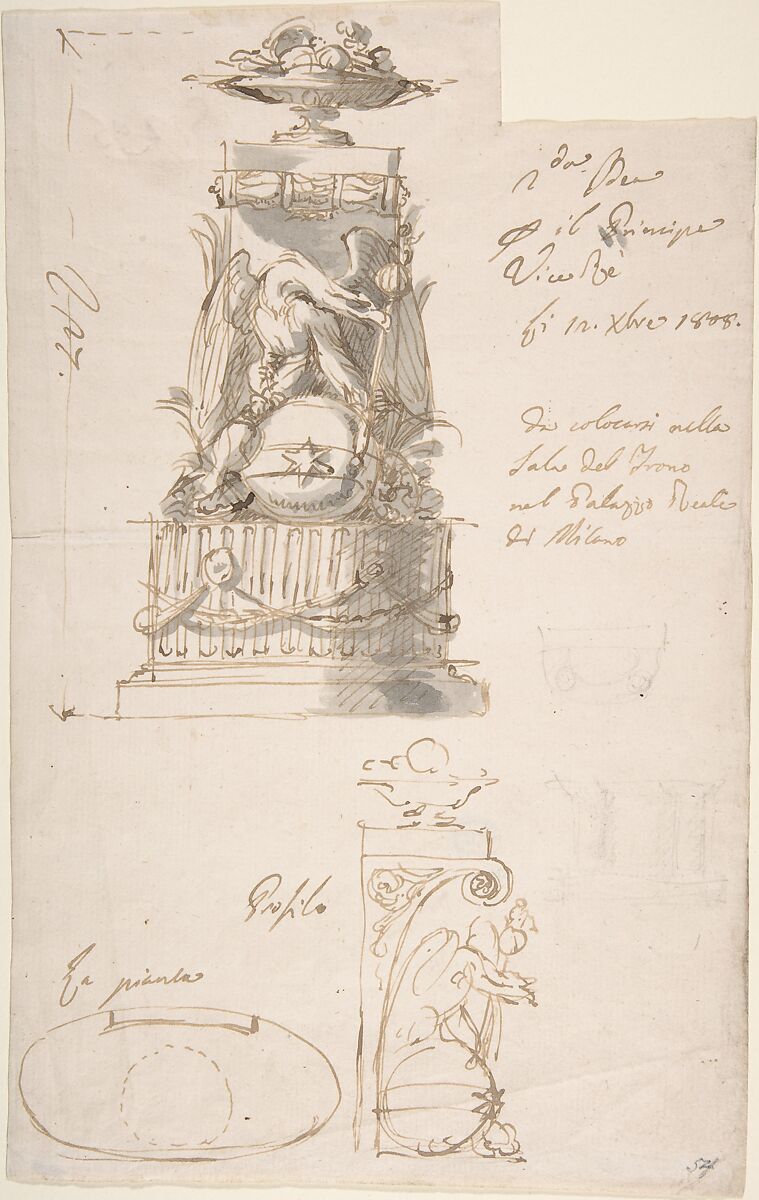 2da Idea
il Principe
Vice Rè
li 12. Xbre 1808.
da colocarsi nella
Sala del Trono
nel Palazzo Reale
di Milano
Profilo
La pianta
54